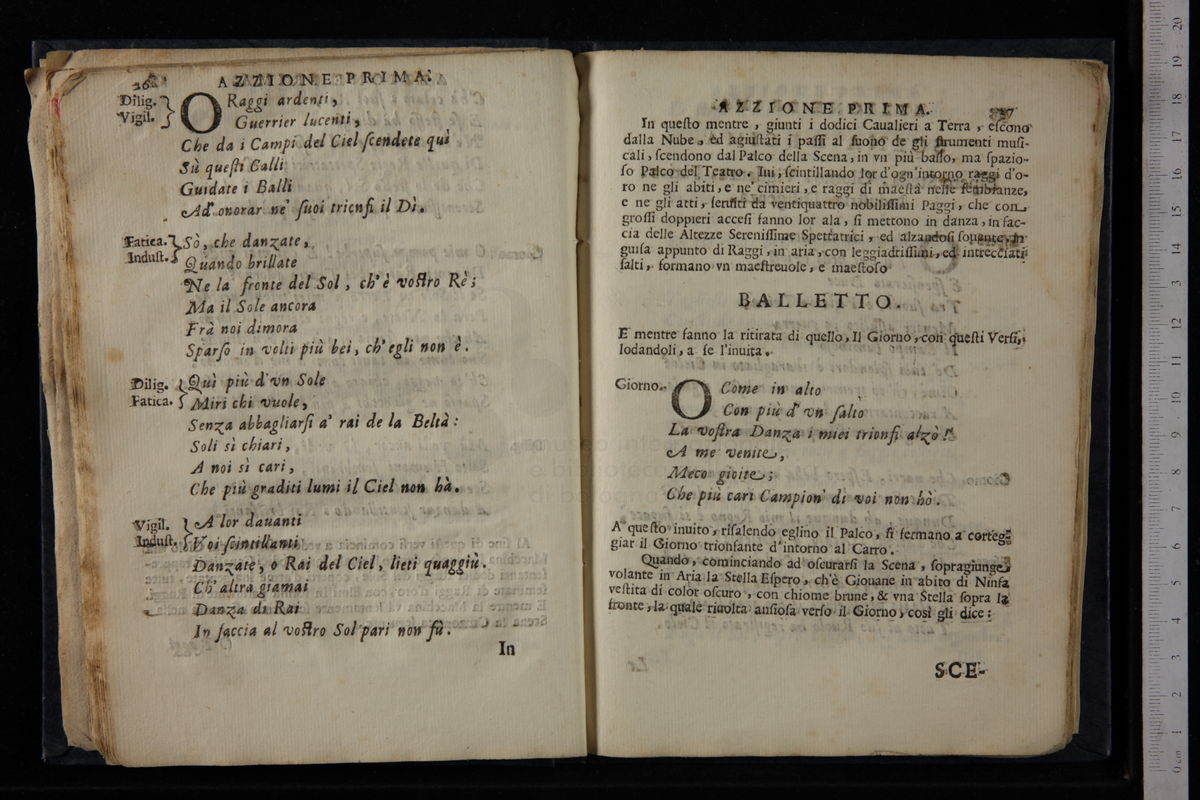 26
AZZIONE PRIMA.
Dilig.
Vigil.
O Raggi ardenti,
Guerrier lucenti,
Che da i Campi del Ciel ſcendete quì
Sù queſti Calli
Guidate i Balli
Ad onorar ne' ſuoi trionfi il Dì.
Fatica.
Induſt.
Sò, che danzate,
Quando brillate
Ne la fronte del Sol, ch'è voſtro Rè;
Ma il Sole ancora
Frà noi dimora
Sparſo in volti più bei, ch'egli non è.
Dilig.
Fatica.
Quì più d'vn Sole
Miri chi vuole,
Senza abbagliarſi a' rai de la Beltà:
Soli sì chiari,
A noi sì cari,
Che più graditi lumi il Ciel non hà.
Vigil.
Induſt.
A lor dauanti
Voi ſcintillanti
Danzate, o Rai del Ciel, lieti quaggiù.
Ch'altra giamai
Danza di Rai
In faccia al voſtro Sol pari non fù.
In
AZZIONE PRIMA.
In queſto mentre, giunti i dodici Caualieri a Terra, eſcono
dalla Nube, ed agiuſtati i paſſi al ſuono de gli ſtrumenti muſi-
cali, ſcendono dal Palco della Scena, in vn più baſſo, ma ſpazio-
ſo Palco del Teatro. Iui, ſcintillando lor d'ogn'intorno raggi d'o-
ro ne gli abiti, e ne' cimieri, e raggi di maeſtà nelle ſembianze,
e ne gli atti, ſeruiti da ventiquattro nobiliſſimi Paggi, che con
groſſi doppieri acceſi fanno lor ala, ſi mettono in danza, in fac-
cia delle Altezze Sereniſſime Spettatrici, ed alzandoſi ſouente, in
guiſa appunto di Raggi, in aria, con leggiadriſſimi, ed intrecciati
ſalti, formano vn maeſtreuole, e maeſtoſo
BALLETTO.
E mentre fanno la ritirata di quello, Il Giorno, con queſti Verſi,
lodandoli, a ſe l'inuita.
Giorno.
O Come in alto
Con più d'vn ſalto
La voſtra Danza i miei trionfi alzò!
A me venite,
Meco gioite;
Che più cari Campion' di voi non hò.
A queſto inuito, riſalendo eglino il Palco, ſi fermano a corteg-
giar il Giorno trionfante d'intorno al Carro.
Quando, cominciando ad oscurarſi la Scena, ſopragiunge
volante in Aria la Stella Eſpero, ch'è Giouane in abito di Ninfa
veſtita di color oſcuro, con chiome brune, & vna Stella ſopra la
fronte, la quale riuolta anſioſa verſo il Giorno, così gli dice:
SCE-